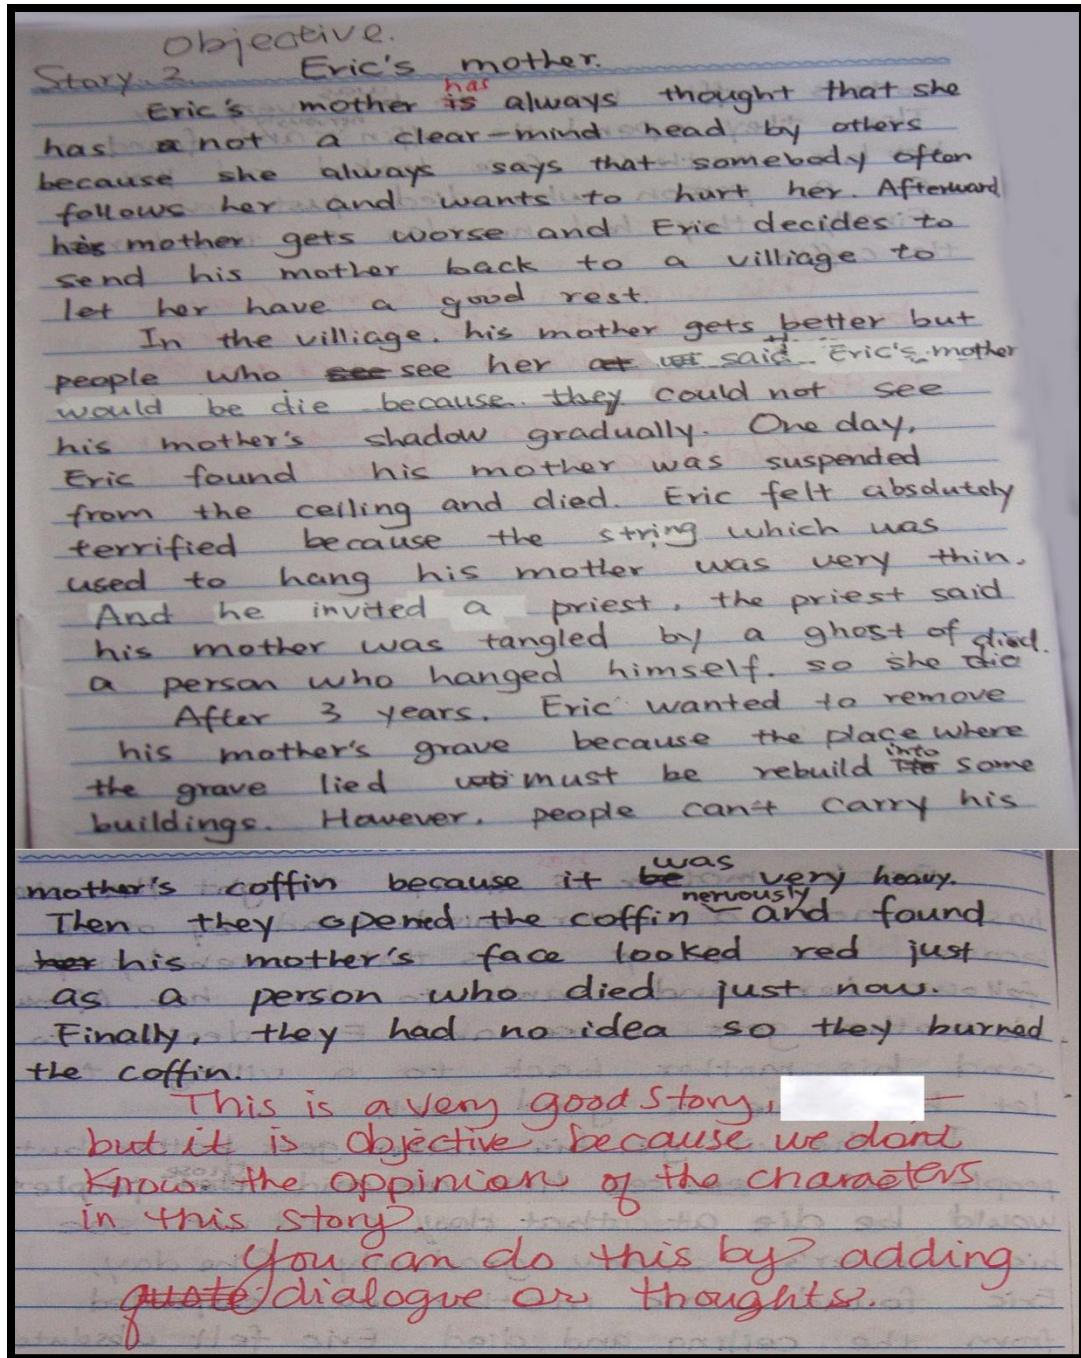 Objective.
Story 2. Eric's mother.
has
Eric's mother is always thought that she
has not a clear-mind head by others
because she always says that somebody often
follows her and wants to hurt her. Afterward
his mother gets worse and Eric decides to
send his mother back to a villiage to
let her have a good rest.
In the villiage, his mother gets better but
people who see see her at said Eric's mother
would be die because they could not see
his mother's shadow gradually. One day,
Eric found his mother was suspended
from the ceiling and died. Eric felt absolutely
terrified because the string which was
used to hang his mother was very thin.
And he invited a priest, the priest said
his mother was tangled by a ghost of
a person who hanged himself. so she die died.
After 3 years, Eric wanted to remove
his mother's grave because the place where
the grave lied must be rebuild into some
buildings. However, people can't carry his
mother's coffin because it be was very heavy.
Then they opened the coffin nervously and found
her his mother's face looked red just
as a person who died just now.
Finally, they had no idea so they burned
the coffin.
This is a very good story,
but it is objective because we dont
know the oppinion of the characters
in this story.
You can do this by adding
quote dialogue or thoughts.